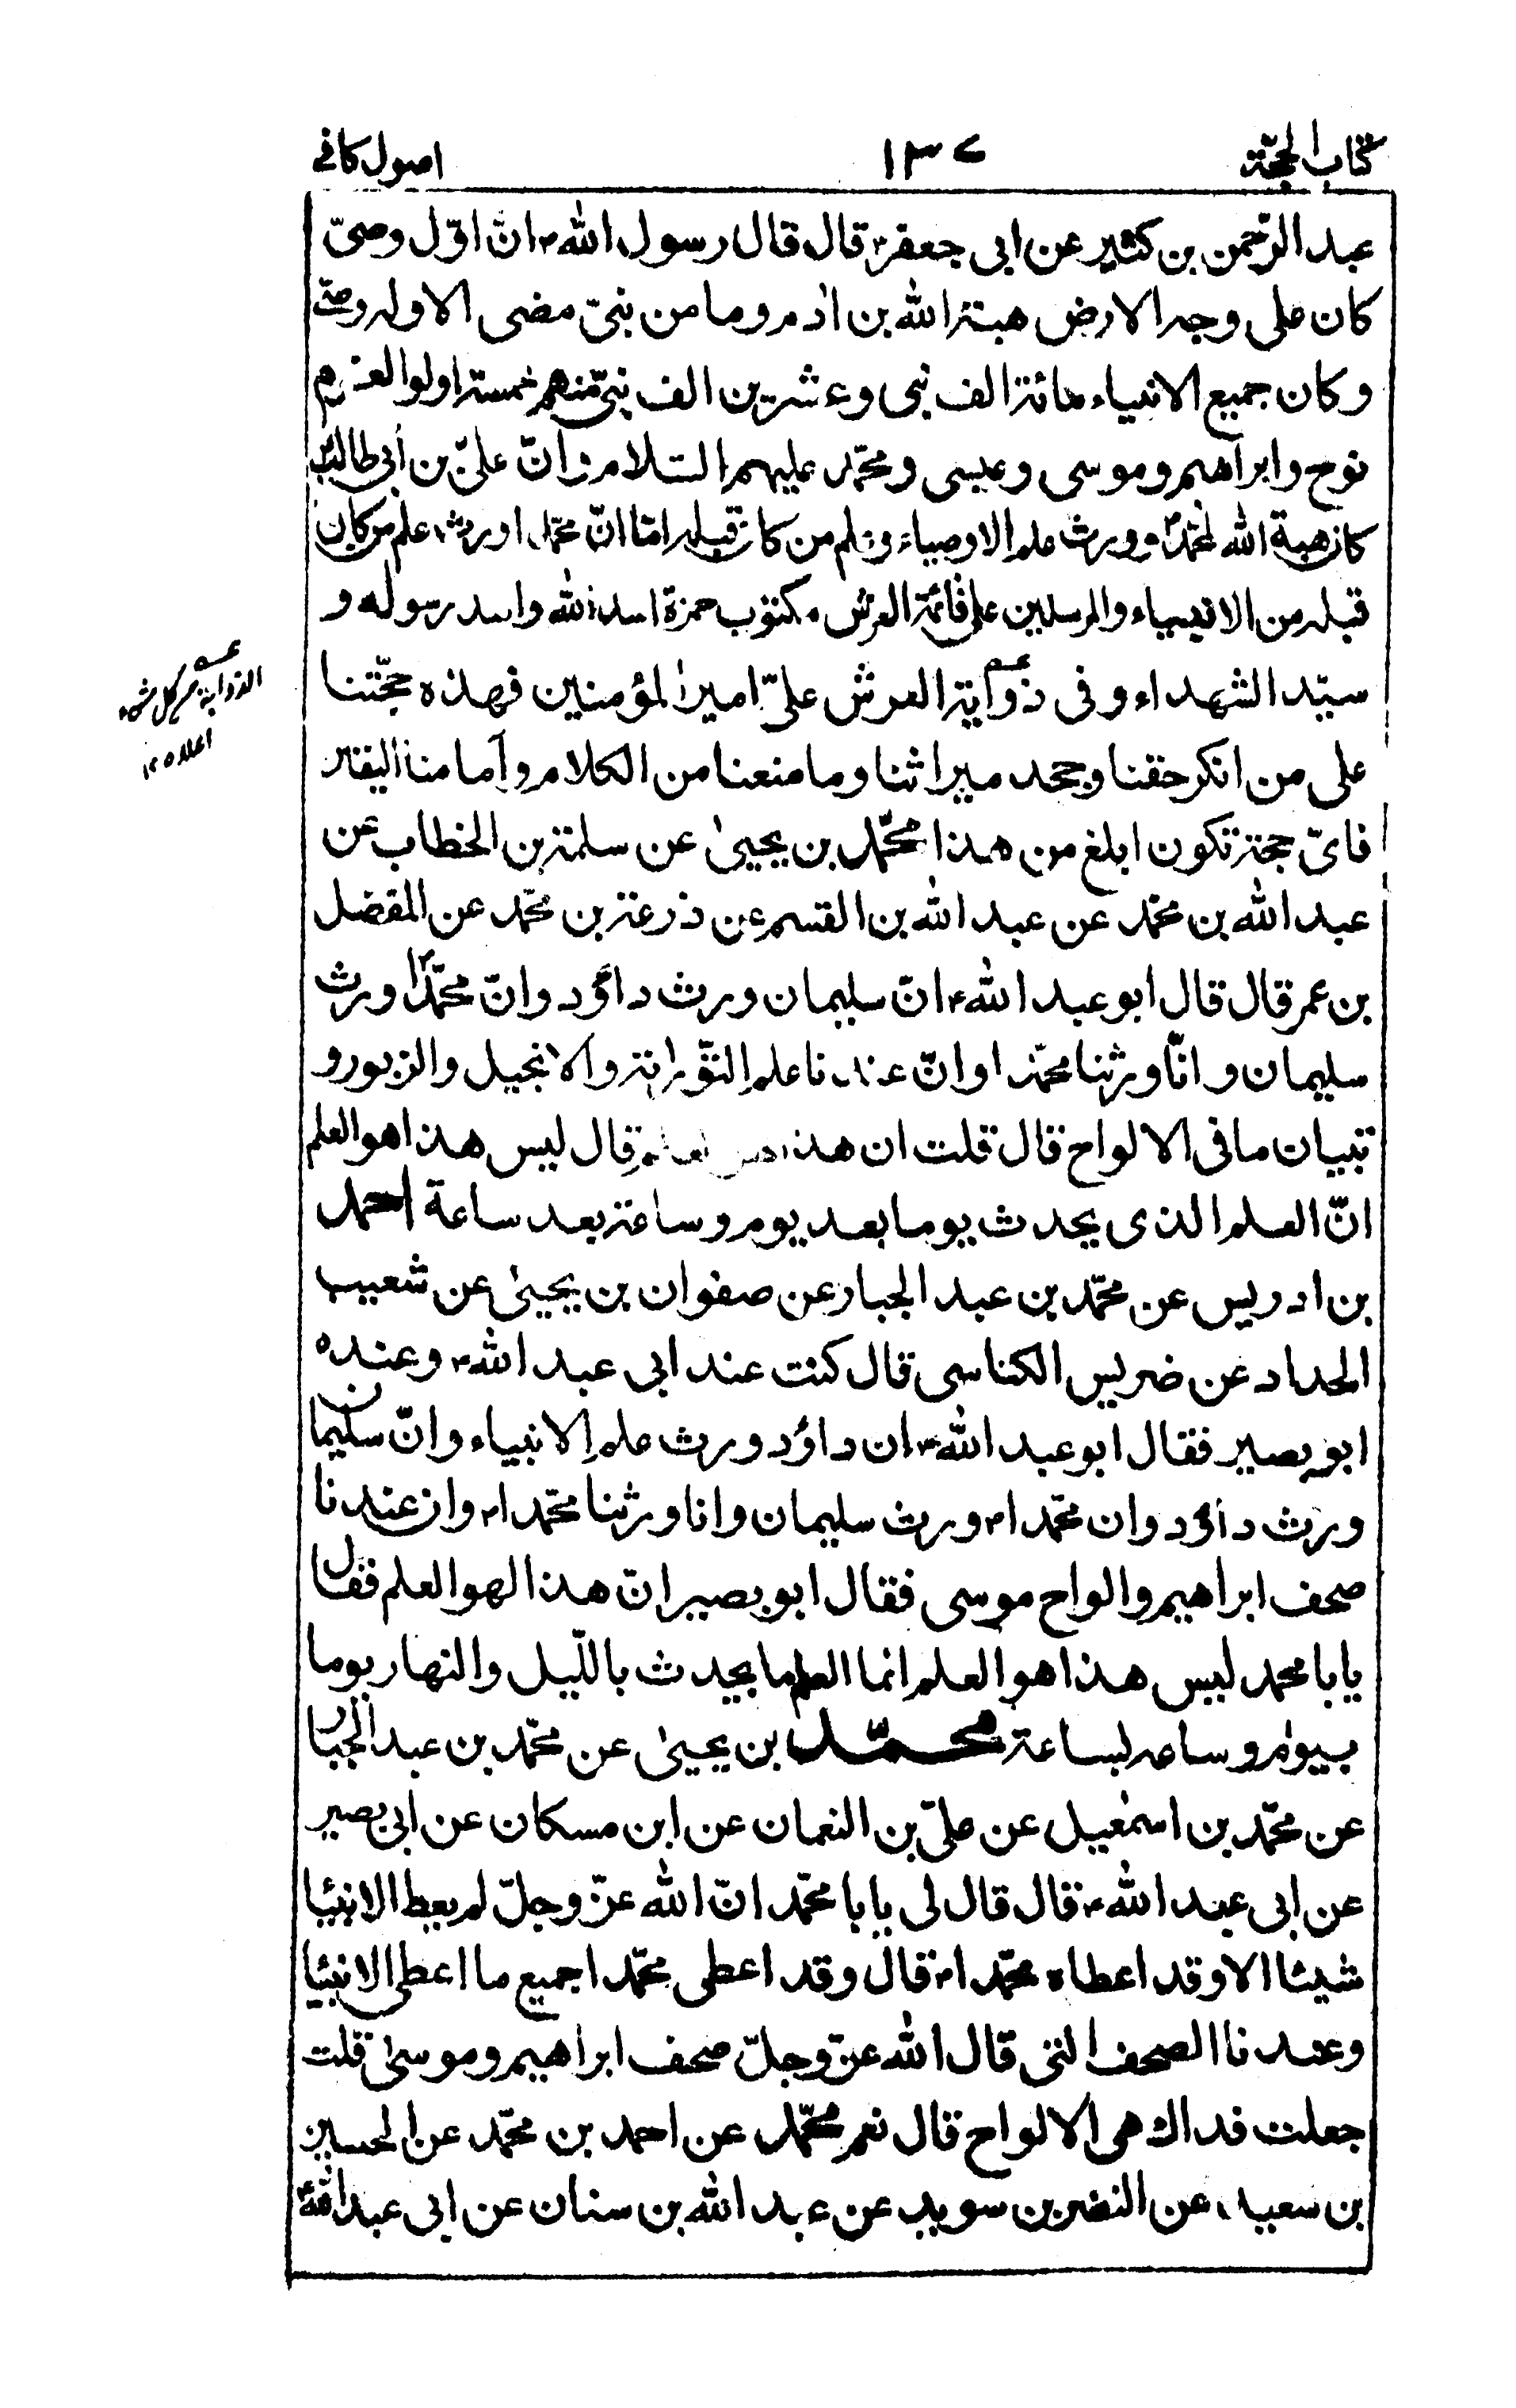 كتاب الحجّة ١٣٧ اصول كافى
عبد الرّحمن بن كثير عن ابى جعفر؏ قال قال رسول اللهؐ انّ اوّل وصىّ
كان على وجه الارض هبة الله بن ادم وما من نبىّ مضى الا وله وصىّ
وكان جميع الانبياء مائة الف نبى وعشرين الف نبىّ منهم خمسة اولوا العزم
نوح وابراهيم وموسى وعيسى ومحمّد عليهم السّلام وانّ علىّ بن أبى طالبؑ
كان هبة الله لمحمّدؐ وورث علم الاوصياء وعلم من كان قبله امّا انّ محمّدا ورث علم من كان
قبله من الانبياء والمرسلين على قائمة العرش مكتوب حمزة اسد الله واسد رسوله و
سيّد الشهداء وفى ذوابة العرش علىّ امير المؤمنين فهذه حجّتنا
على من انكر حقنا وجحد ميراثنا وما منعنا من الكلام وأمامنا اليقين
فاىّ حجة تكون ابلغ من هذا محمّد بن يحيىٰ عن سلمة بن الخطاب عن
عبد الله بن محمّد عن عبد الله بن القسم عن ذرعة بن محمّد عن المفضل
بن عمر قال قال ابو عبد الله؏ انّ سليمان ورث داؤد وانّ محمّداؐ ورث
سليمان وانّا ورثنا محمّدا وانّ عندنا علم التّوراة والانجيل والزبور و
تبيان ما فى الالواح قال قلت ان هذا لهو العلم قال ليس هذا هو العلم
انّ العلم الذى يحدث يوما بعد يوم وساعة بعد ساعة احمد
بن ادريس عن محمّد بن عبد الجبار عن صفوان بن يحيىٰ عن شعيب
الحداد عن ضريس الكناسى قال كنت عند ابى عبد الله؏ وعنده
ابو بصير فقال ابو عبد الله؏ ان داؤد ورث علم الانبياء وانّ سليمان
ورث داؤد وان محمّداؐ ورث سليمان وانا ورثنا محمّداؐ وان عندنا
صحف ابراهيم والواح موسى فقال ابو بصير انّ هذا لهو العلم فقال
يابا محمد ليس هذا هو العلم انما العلم ما يحدث بالليل والنهار يوما
بيوم وساعة بساعة محمّد بن يحيىٰ عن محمّد بن عبد الجبار
عن محمّد بن اسمٰعيل عن علىّ بن النعمان عن ابن مسكان عن ابى بصير
عن ابى عبد الله؏ قال قال لى يابا محمّد انّ الله عزّ وجلّ لم يعط الانبيا
شيئا الا وقد اعطاه محمّداؐ قال وقد اعطى محمّدا جميع ما اعطى الانبيا
وعندنا الصحف التى قال الله عزّ وجلّ صحف ابراهيم وموسىٰ قلت
جعلت فداك هى الالواح قال نعم محمّد عن احمد بن محمّد عن الحسين
بن سعيد عن النضر بن سويد عن عبد الله بن سنان عن ابى عبد الله؏
الذوابة من كل شىء
اعلاه ١٢